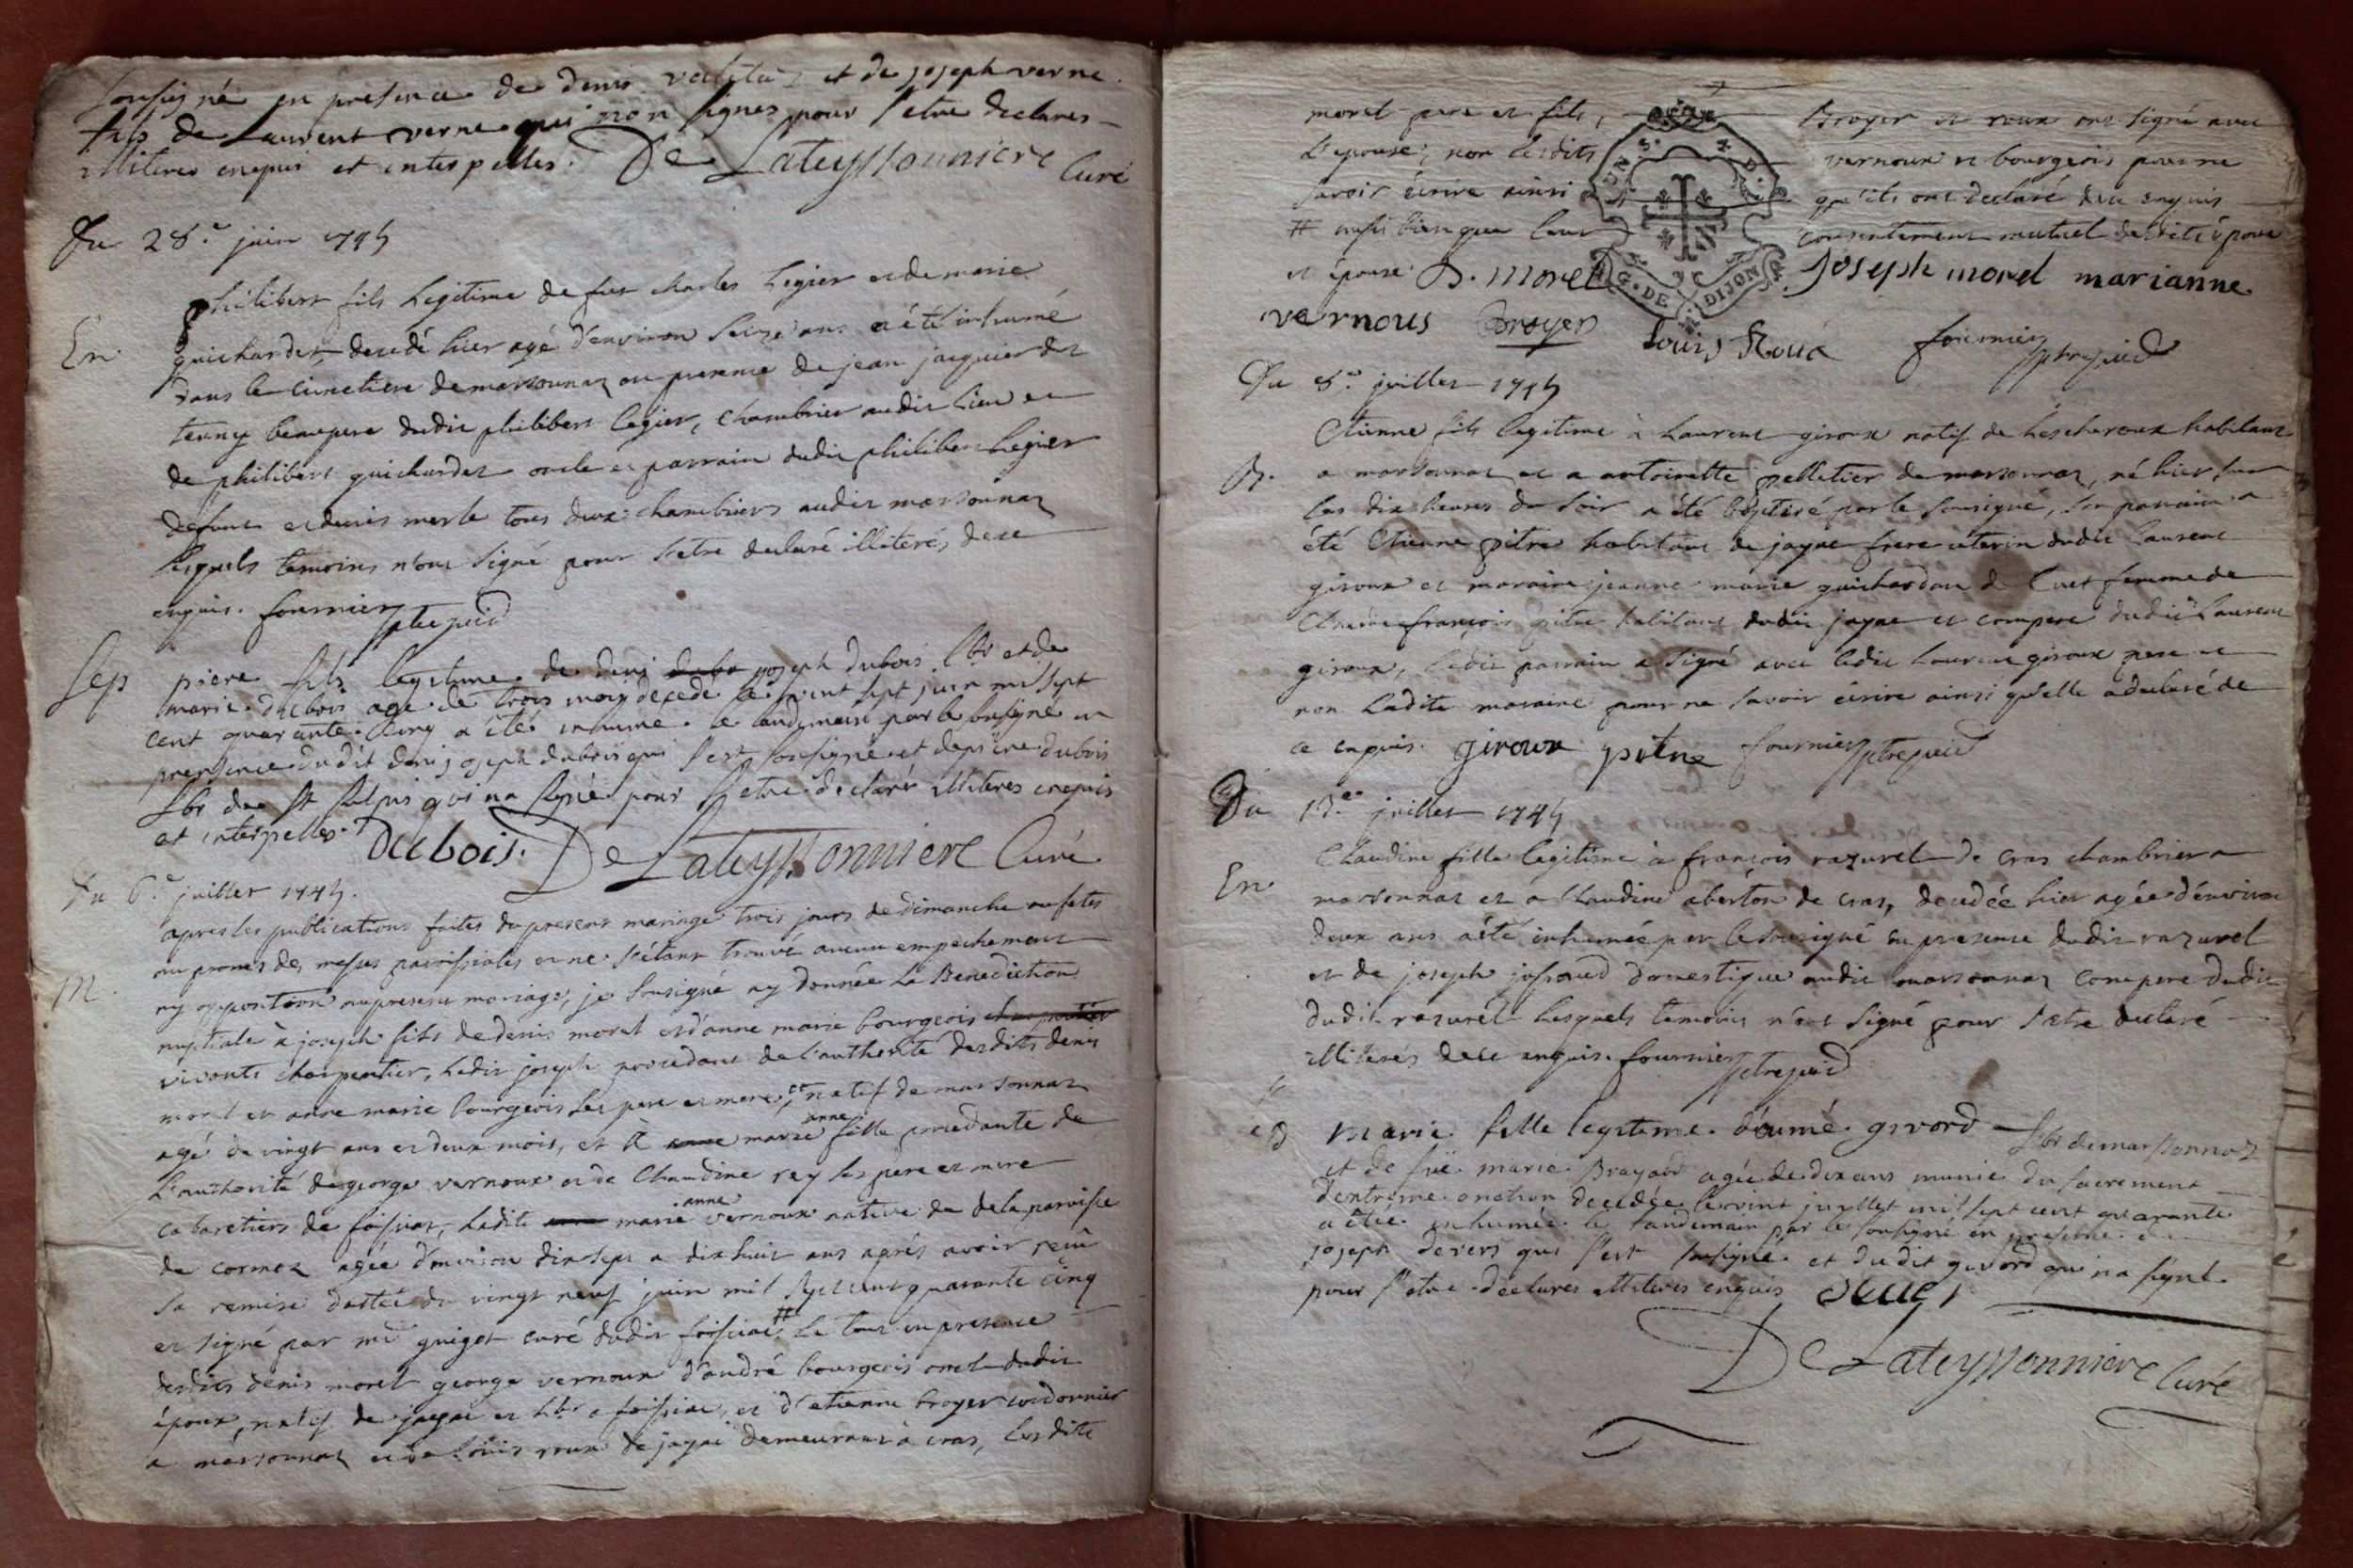 sousigné en presence de denis et de joseph verne
fils de Laurent verne qui non signes pour s'etre declares
illiteres enquis et interpelles. De Lateyssonniere Curé
Du 28.e juin 1745
philibert fils legitime de feu charles legier et de marie
En guichardet, decedé hier agé d'environ seize ans a été inhumé
dans le cimetiere de marsonnaz en presence de jean jacquier des
beaupere dudit philibert legier, chambrier audit lieu et
de philibert guichardet oncle et parrain dudit philibert legier
defunt et denis merle tous deux chambriers audit marsonnaz
lesquels temoins n'ont signé pour s'etre declaré illiterés de ce
enquis. fournier
Sep piere fils legitime de deni joseph dubois hbt et de
marie dubois age de trois moy decede le vint sept juin mil sept
cent quarante cinq a été inhumé le landemain par le soussigné en
presence dudit deni joseph dubois qui s'est sousigné et de piere dubois
hbt de st sulpis qui na signé pour s'etre declaré illiteres enquis
et interpelles. Dubois. De Lateyssonniere Curé
Du 6.e juillet 1745.
apres les publications faites du present mariage trois jours de dimanche ou fetes
au prones des messes paroissiales et ne s'étant trouvé aucun empechement
M. ny opposition au present mariage, je sousigné ay donnée la Benediction
nuptiale à joseph fils de denis morel et d'anne marie bourgeois
vivants charpentier, ledit joseph procedant de l'authorité desdits denis
morel et anne marie bourgeois ses pere et mere, et natif de marsonnaz
agé de vingt ans et deux mois, et à marie anne fille procedante de
l'authorité de george vernoux et de Claudine rey ses pere et mere
cabaretiers de foissiat, ladite marie anne vernoux native de de la paroisse
de cormoz agée d'environ dix sept a dix huit ans après avoir receu
sa remise dattée du vingt neuf juin mil sept cent quarante cinq
et signé par mre guigot curé dudit foissiat # le tout en presence
desdits denis morel george vernoux d'andré bourgeois oncle dudit
époux, natif de jayat et hbt a foissiat, et d'etienne broyer cordonnier
a marsonnaz et de Louis roux de jayat demeurant à cras, lesdits
morel pere et fils, Broyer et roux ont signé avec
l'epouse, non lesdits vernoux et bourgeois pour ne
savoir écrire ainsi qu'ils ont declaré de ce enquis
# aussi bien que leur consentement mutuel desdits époux
et épouse D. morel joseph morel marianne
vernous Broyer Louis Roux fournier
G. DE DIJON
Du 8.e juillet 1745
Etienne fils legitime à Laurent giroux natif de Lescheroux habitant
B. a marsonnaz et a antoinette pelletier de marsonnaz, né hier sur
les dix heures du soir a été baptisé par le sousigné, son parrain a
été Etienne pitre habitant de jayat frere uterin dudit Laurent
giroux et maraine jeanne marie guichardon de Cuet femme de
françois pitre habitant dudit jayat et compere dudit Laurent
giroux, ledit parrain a signé avec ledit Laurent giroux pere et
non ladite maraine pour ne savoir écrire ainsi qu'elle a declaré de
ce enquis. giroux pitre fournier
Du 13.e juillet 1745
Claudine fille legitime à françois razurel de cras chambrier a
En marsonnaz et a Claudine aberton de cras, decedée hier agée d'environ
deux ans a été inhumée par le sousigné en presence dudit razurel
et de joseph josserand domestique audit marsonnaz compere dudit
dudit razurel lesquels temoins n'ont signé pour s'etre declaré
illiterés de ce enquis. fournier
marie fille legitime d'éumé givord hbt de marssonnaz
et de fuë marie Brayard agée de dix ans munie du sacrement
d'extreme onction decedée le vint juillet mil sept cent quarante
a étée inhumée le landemain par le sousigné en presence de
joseph devers qui s'est sousigné et dudit givord qui na signé
pour s'etre declares illiteres enquis
De Lateyssonniere Curé